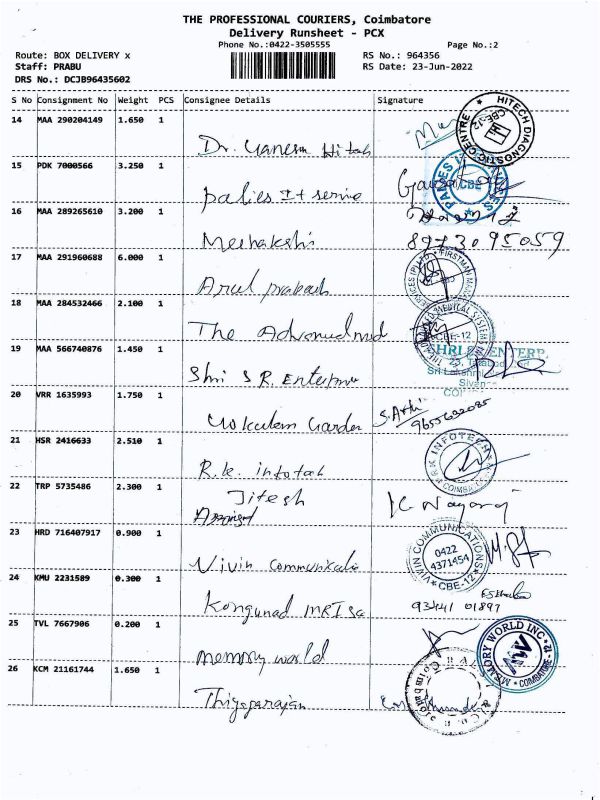 THE PROFESSIONAL COURIERS, Coimbatore
Delivery Runsheet - PCX
Phone No.:0422-3505555
Page No.:2
Route: BOX DELIVERY x
RS No.: 964356
Staff: PRABU
RS Date: 23-Jun-2022
DRS No.: DCJB96435602
S No Consignment No Weight PCS Consignee Details Signature
14 MAA 290204149 1.650 1
HITECH DIAGNOSTIC CENTRE
CBE-12
Dr. Ganesh Hitech
15 PDK 7000566 3.250 1
CBE
Palies It servise
16 MAA 289265610 3.200 1
Meenakshi
8973095059
17 MAA 291960688 6.000 1
Arul prakash
18 MAA 284532466 2.100 1
The Advanced med
CBE-12
19 MAA 566740876 1.450 1
SHRI ENTERP
Shri S R. Enterprise
20 VRR 1635993 1.750 1
Gokulam Garden
S. Arthi
21 HSR 2416633 2.510 1
R.K INFOTECH
COIMBA
R.K. infotech
22 TRP 5735486 2.300 1
Jitesh
K Nagaraj
23 HRD 716407917 0.900 1
VIVIN COMMUNICATIONS
0422
4371454
CBE-12
Vivin Communicatio
24 KMU 2231589 0.300 1
Kongunad MRI Sc
93441 01897
25 TVL 7667906 0.200 1
MEMORY WORLD INC
COIMBATORE - 12
memory world
26 KCM 21161744 1.650 1
Thiyagarajan